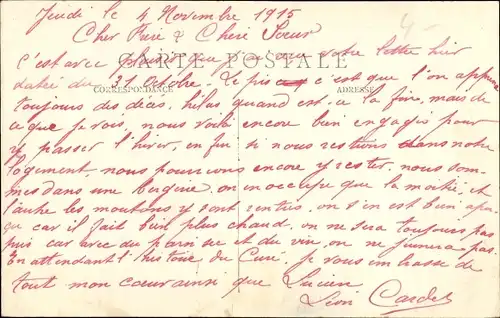 Jeudi le 4 Novembre 1915
Cher Frère & Chère Sœur
CARTE POSTALE
C'est avec plaisir que j'ai reçu votre lettre hier
datée du 31 Octobre. Le pis c'est que l'on apprend
CORRESPONDANCE ADRESSE
toujours des décès, hélas quand est-ce la fin, mais de
ce que je vois, nous voilà encore bien engagés pour
y passer l'hiver, enfin si nous restions dans notre
logement, nous pourrions encore y rester, nous som-
mes dans une Bergerie, on en occupe que la moitié et
l'autre les moutons y sont rentrés, on s'en est bien aper-
çu car il fait bien plus chaud, on ne sera toujours pas
puis car avec du pain sec et du vin, on ne jeunera pas.
En attendant l'histoire du Curé, je vous embrasse de
tout mon cœur ainsi que Lucien
Léon Cardel